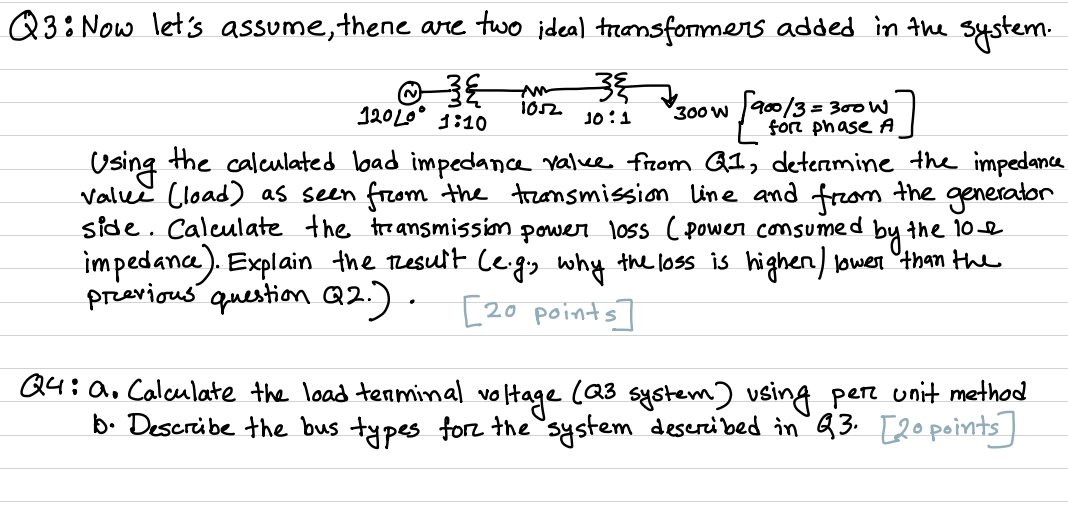 Q3: Now let's assume, there are two ideal transformers added in the system.
120∠0° 1:10 10Ω 10:1 300W [900/3 = 300W
for phase A]
Using the calculated load impedance value from Q1, determine the impedance
value (load) as seen from the transmission line and from the generator
side. Calculate the transmission power loss (power consumed by the 10-Ω
impedance). Explain the result (e.g., why the loss is higher/lower than the
previous question Q2.).
[20 points]
Q4: a. Calculate the load terminal voltage (Q3 system) using per unit method
b. Describe the bus types for the system described in Q3. [20 points]